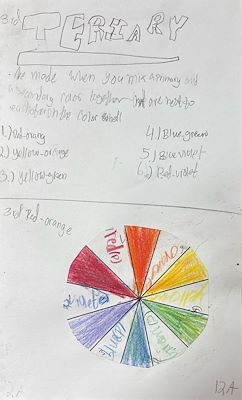 3rd TERIARY
- Are made when you mix a primary and
a secondary color together that are next to
each other on the color wheel!
1.) Red-orang
2.) Yellow-orange
3.) Yellow-green
4.) Blue-green
5.) Blue violet
6.) Red-violet
3rd Red-orange
red(1)
orange
yellow
green(2)
blue(1)
violet(2)
12A